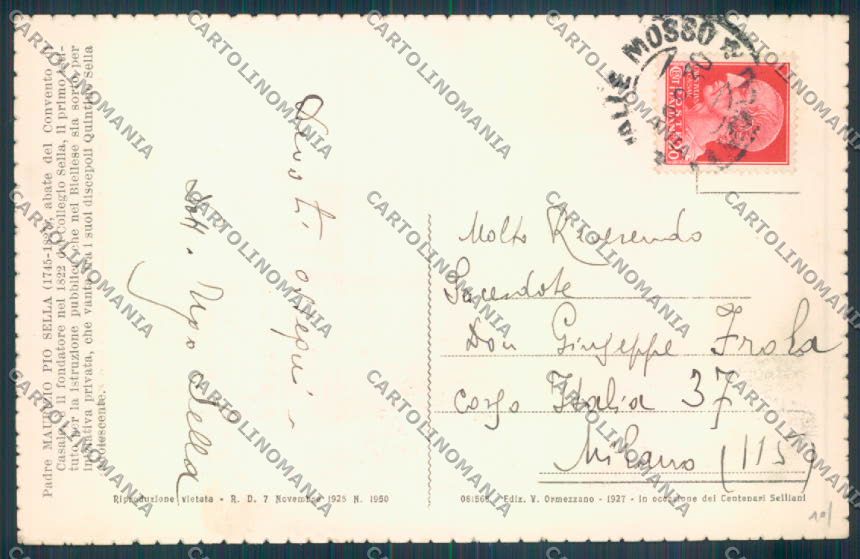 Padre MAURIZIO PIO SELLA (1745-18), abate del Convento di
Casale. Il fondatore nel 1822 del Collegio Sella, il primo isti-
tuto per la istruzione pubblica che nel Biellese sia sorto per
iniziativa privata, che vanta fra i suoi discepoli Quintino Sella
adolescente.
Devoti ossequi -
Dott. Ugo Sella
VALLE MOSSO
POSTE
ITALIANE
20
Molto Reverendo
Sacerdote
Don Giuseppe Frola
Corso Italia 37
Milano (115)
Riproduzione vietata - R. D. 7 Novembre 1925 N. 1950
Ediz. V. Ormezzano - 1927 - In occasione dei Centenari Selliani
CARTOLINOMANIA